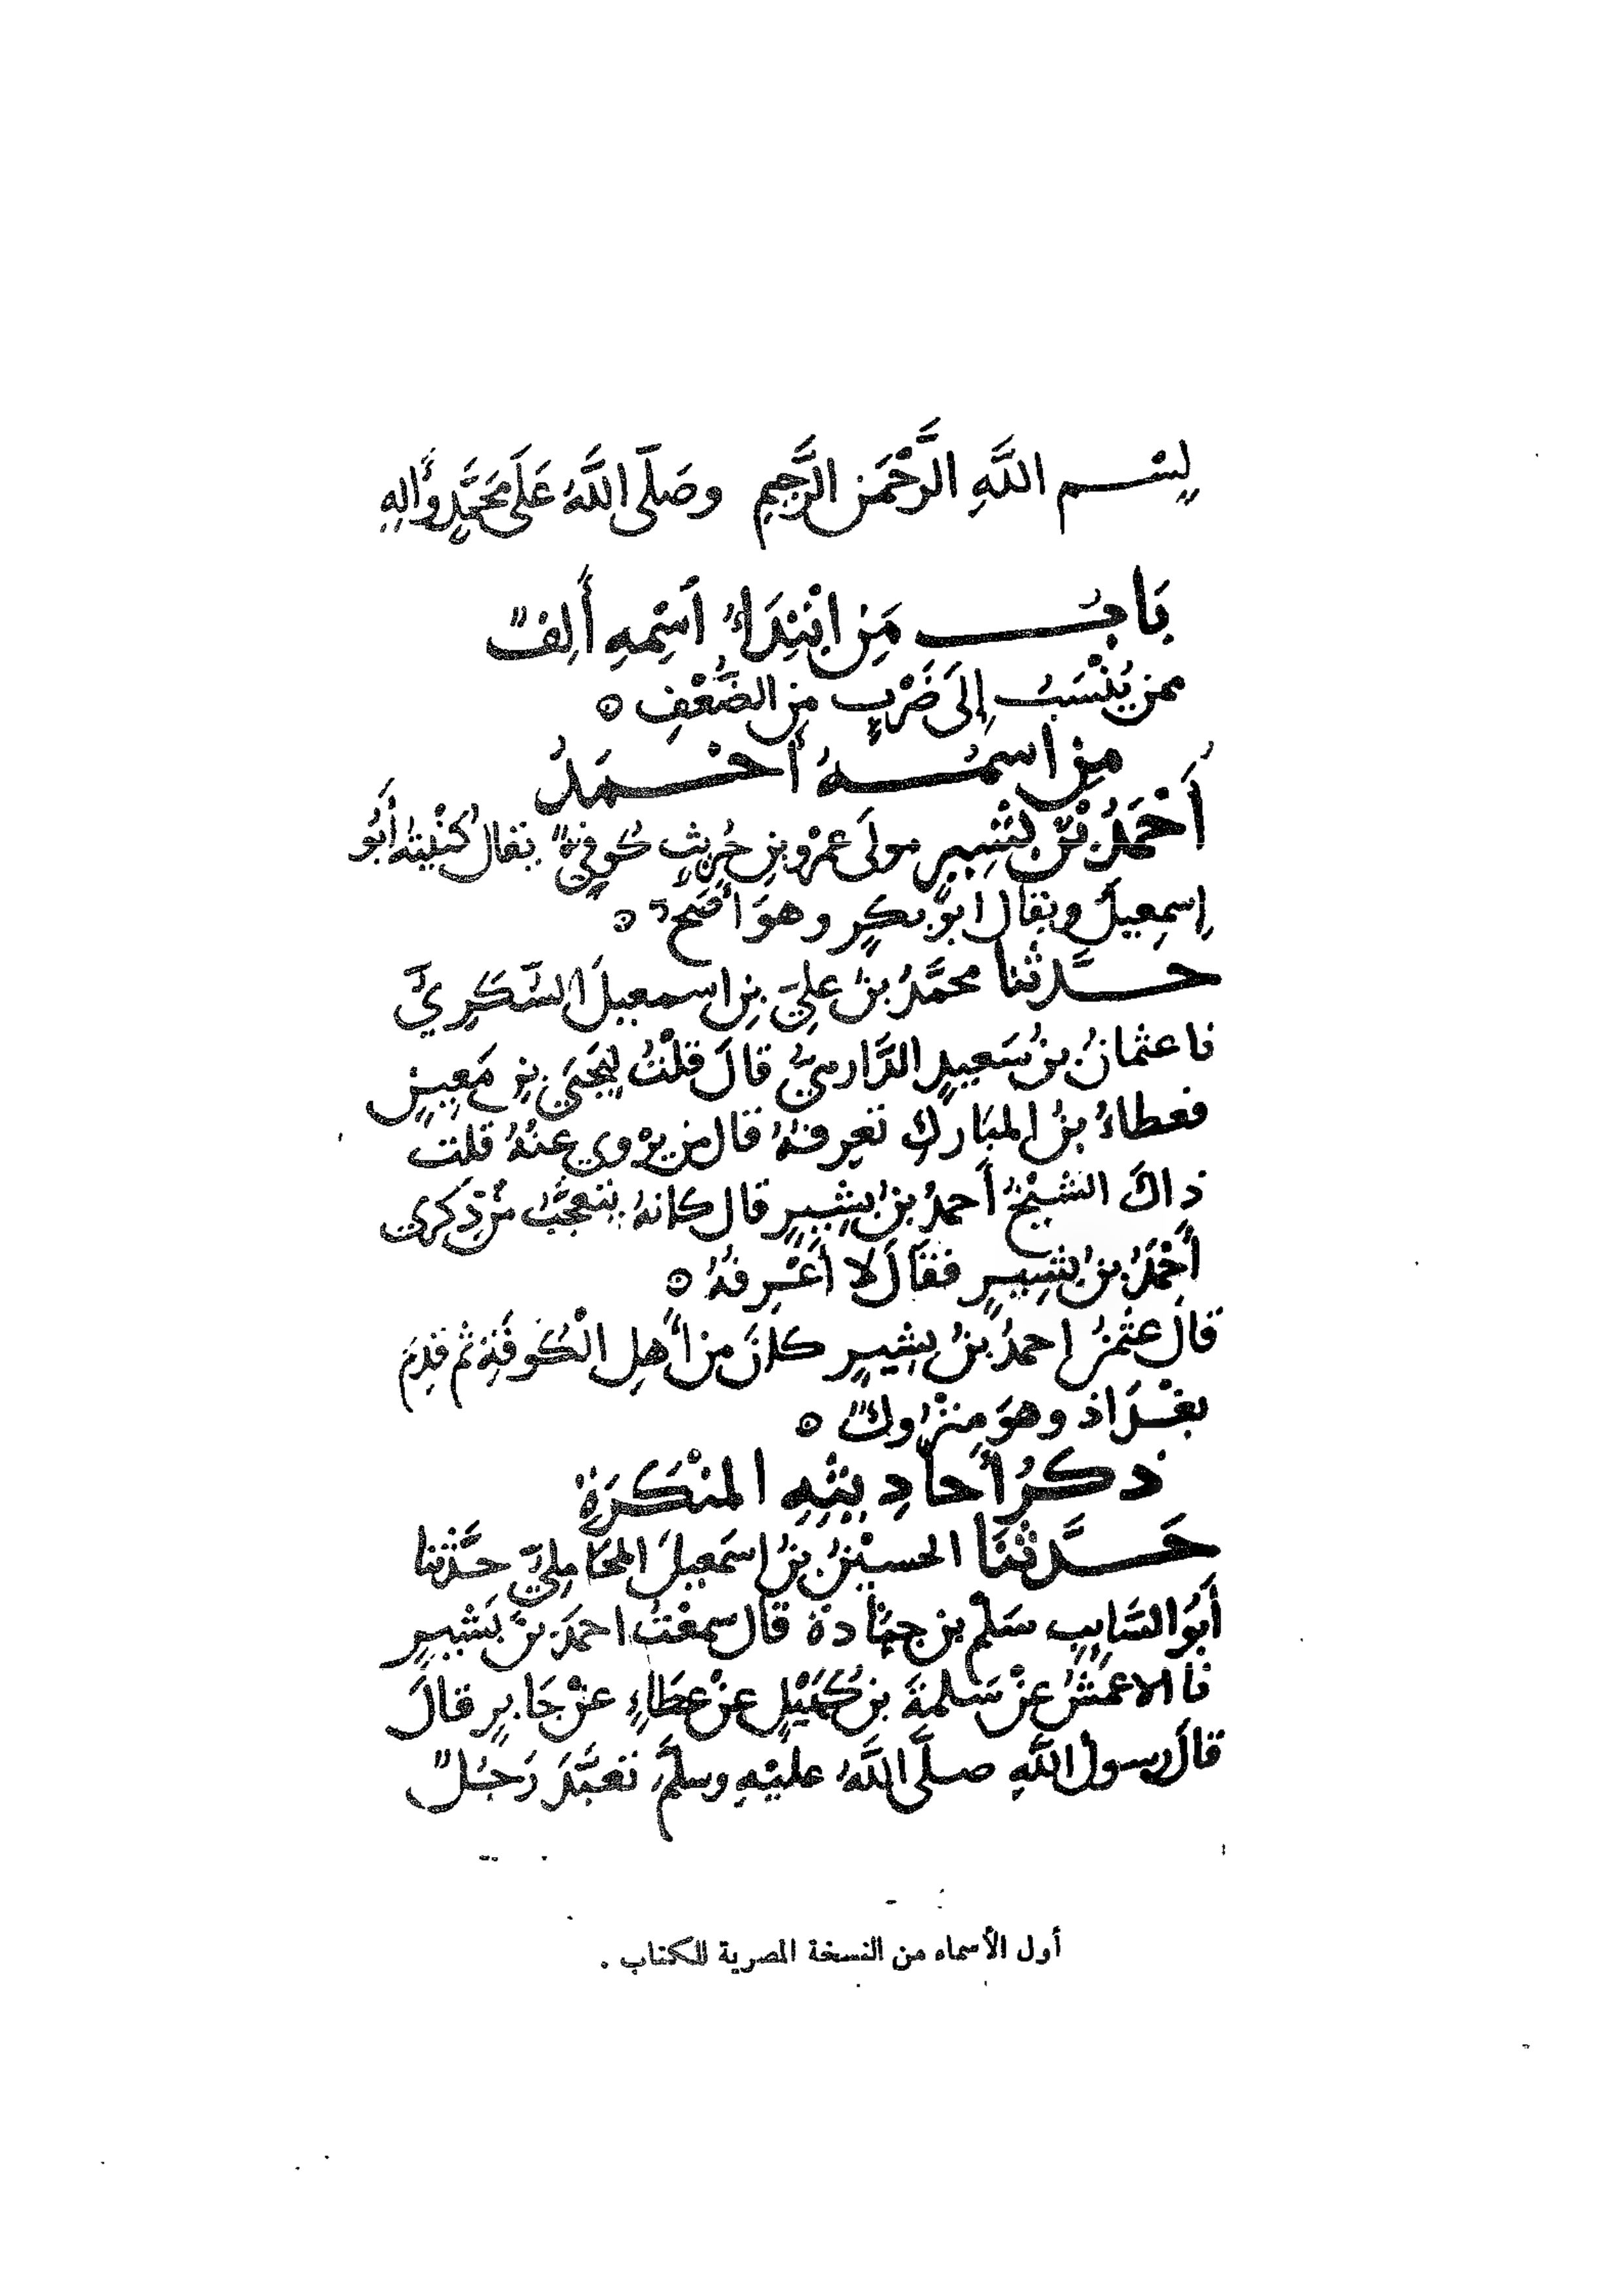 بِسْم اللَّهِ الرَّحْمَنِ الرَّحِيمِ وصَلَّى اللَّهُ عَلَى مُحَمَّدٍ وَّالِهِ
بَابُ مَنِ ابْتِدَاءُ اَسْمِهِ أَلِفٌ
ممن يُنْسَبُ إِلَى ضَرْبٍ مِن الضَّعْفِ ۞
مِن اسمُهُ أَحْمَدُ
أَحْمَدُ بْنُ بَشِيرٍ مولَى عمْرو بنِ حُرَيثٍ كُوفِيٌّ يقالُ كُنْيتهُ أَبُو
إسمعيلَ ويقال ابو بكرٍ وهوَ أصَح ۞
حَدَّثنا محمَّدُ بنُ عليِّ بنِ اسمعيلَ السُّكَّرِيُّ
نا عثمانُ بنُ سَعيدٍ الدَّارميُّ قالَ قلْتُ ليَحْيَى بنِ مَعِينٍ
فعطاءُ بنُ المبَارك تَعرِفهُ قال من يرْوي عنْهُ قلت
ذاكَ الشيْخُ أَحمدُ بنُ بشِيرٍ قال كانهُ يتعجَّبُ مِنْ ذكرى
أَحْمَدَ بنَ بشيرٍ فقَالَ لا أَعْرِفهُ ۞
قالَ عثمنُ احمدُ بنُ بشيرٍ كانَ من أَهلِ الْكوفَةِ ثم قدِمَ
بغْدَاذ وهوَ متْرُوكٌ ۞
ذكرُ أَحاديثهِ المنْكَرَةِ
حَدَّثنَا الحسيْنُ بنُ إسمَعيلَ المحَاملِيُّ حدَّثنا
أَبُو السَّايبِ سَلْم بن جنَادة قال سمعْتُ احمدَ بنَ بَشيرٍ
نا الاعمَشُ عنْ سَلمةَ بن كُهَيْلٍ عنْ عطَاءٍ عنْ جَابرٍ قالَ
قالَ رسول اللَّهِ صلَّى اللَّهُ عليْهِ وسلَّمَ تعبَّدَ رَجُلٌ
أول الأسماء من النسخة المصرية للكتاب .